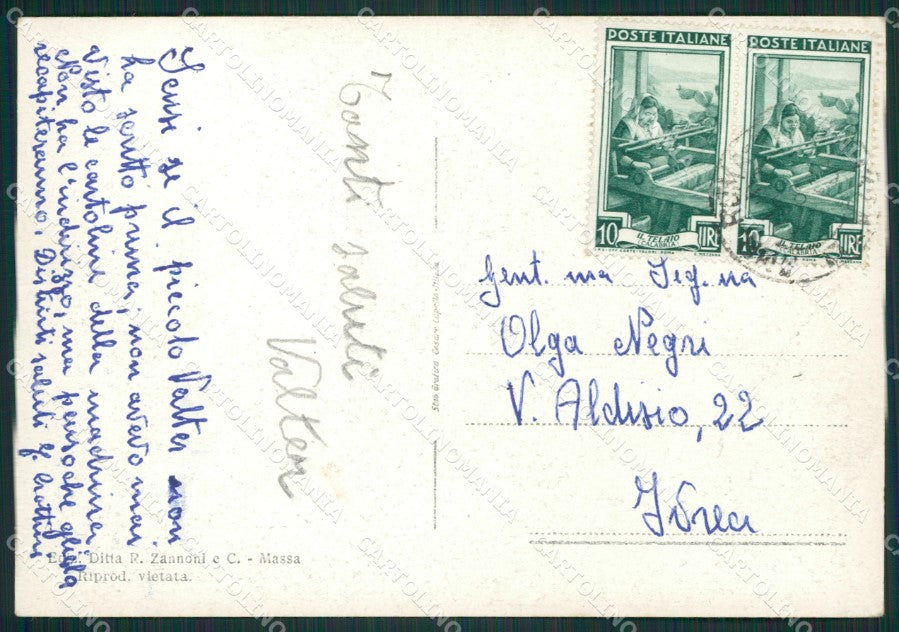 Scusi se il piccolo Valter non
ha scritto prima, non avevo mai
visto le cartoline della madrina
Non ha l'indirizzo, ma penso che gliela
recapiteranno. Distinti saluti
Tanti saluti
Valter
POSTE ITALIANE
10 LIRE
IL TELAIO
CALABRIA
POSTE ITALIANE
10 LIRE
IL TELAIO
CALABRIA
Gent. ma Seg. na
Olga Negri
V. Aldisio, 22
Ivrea
Ediz. Ditta R. Zannoni e C. - Massa
Riprod. vietata.
CARTOLINOMANIA